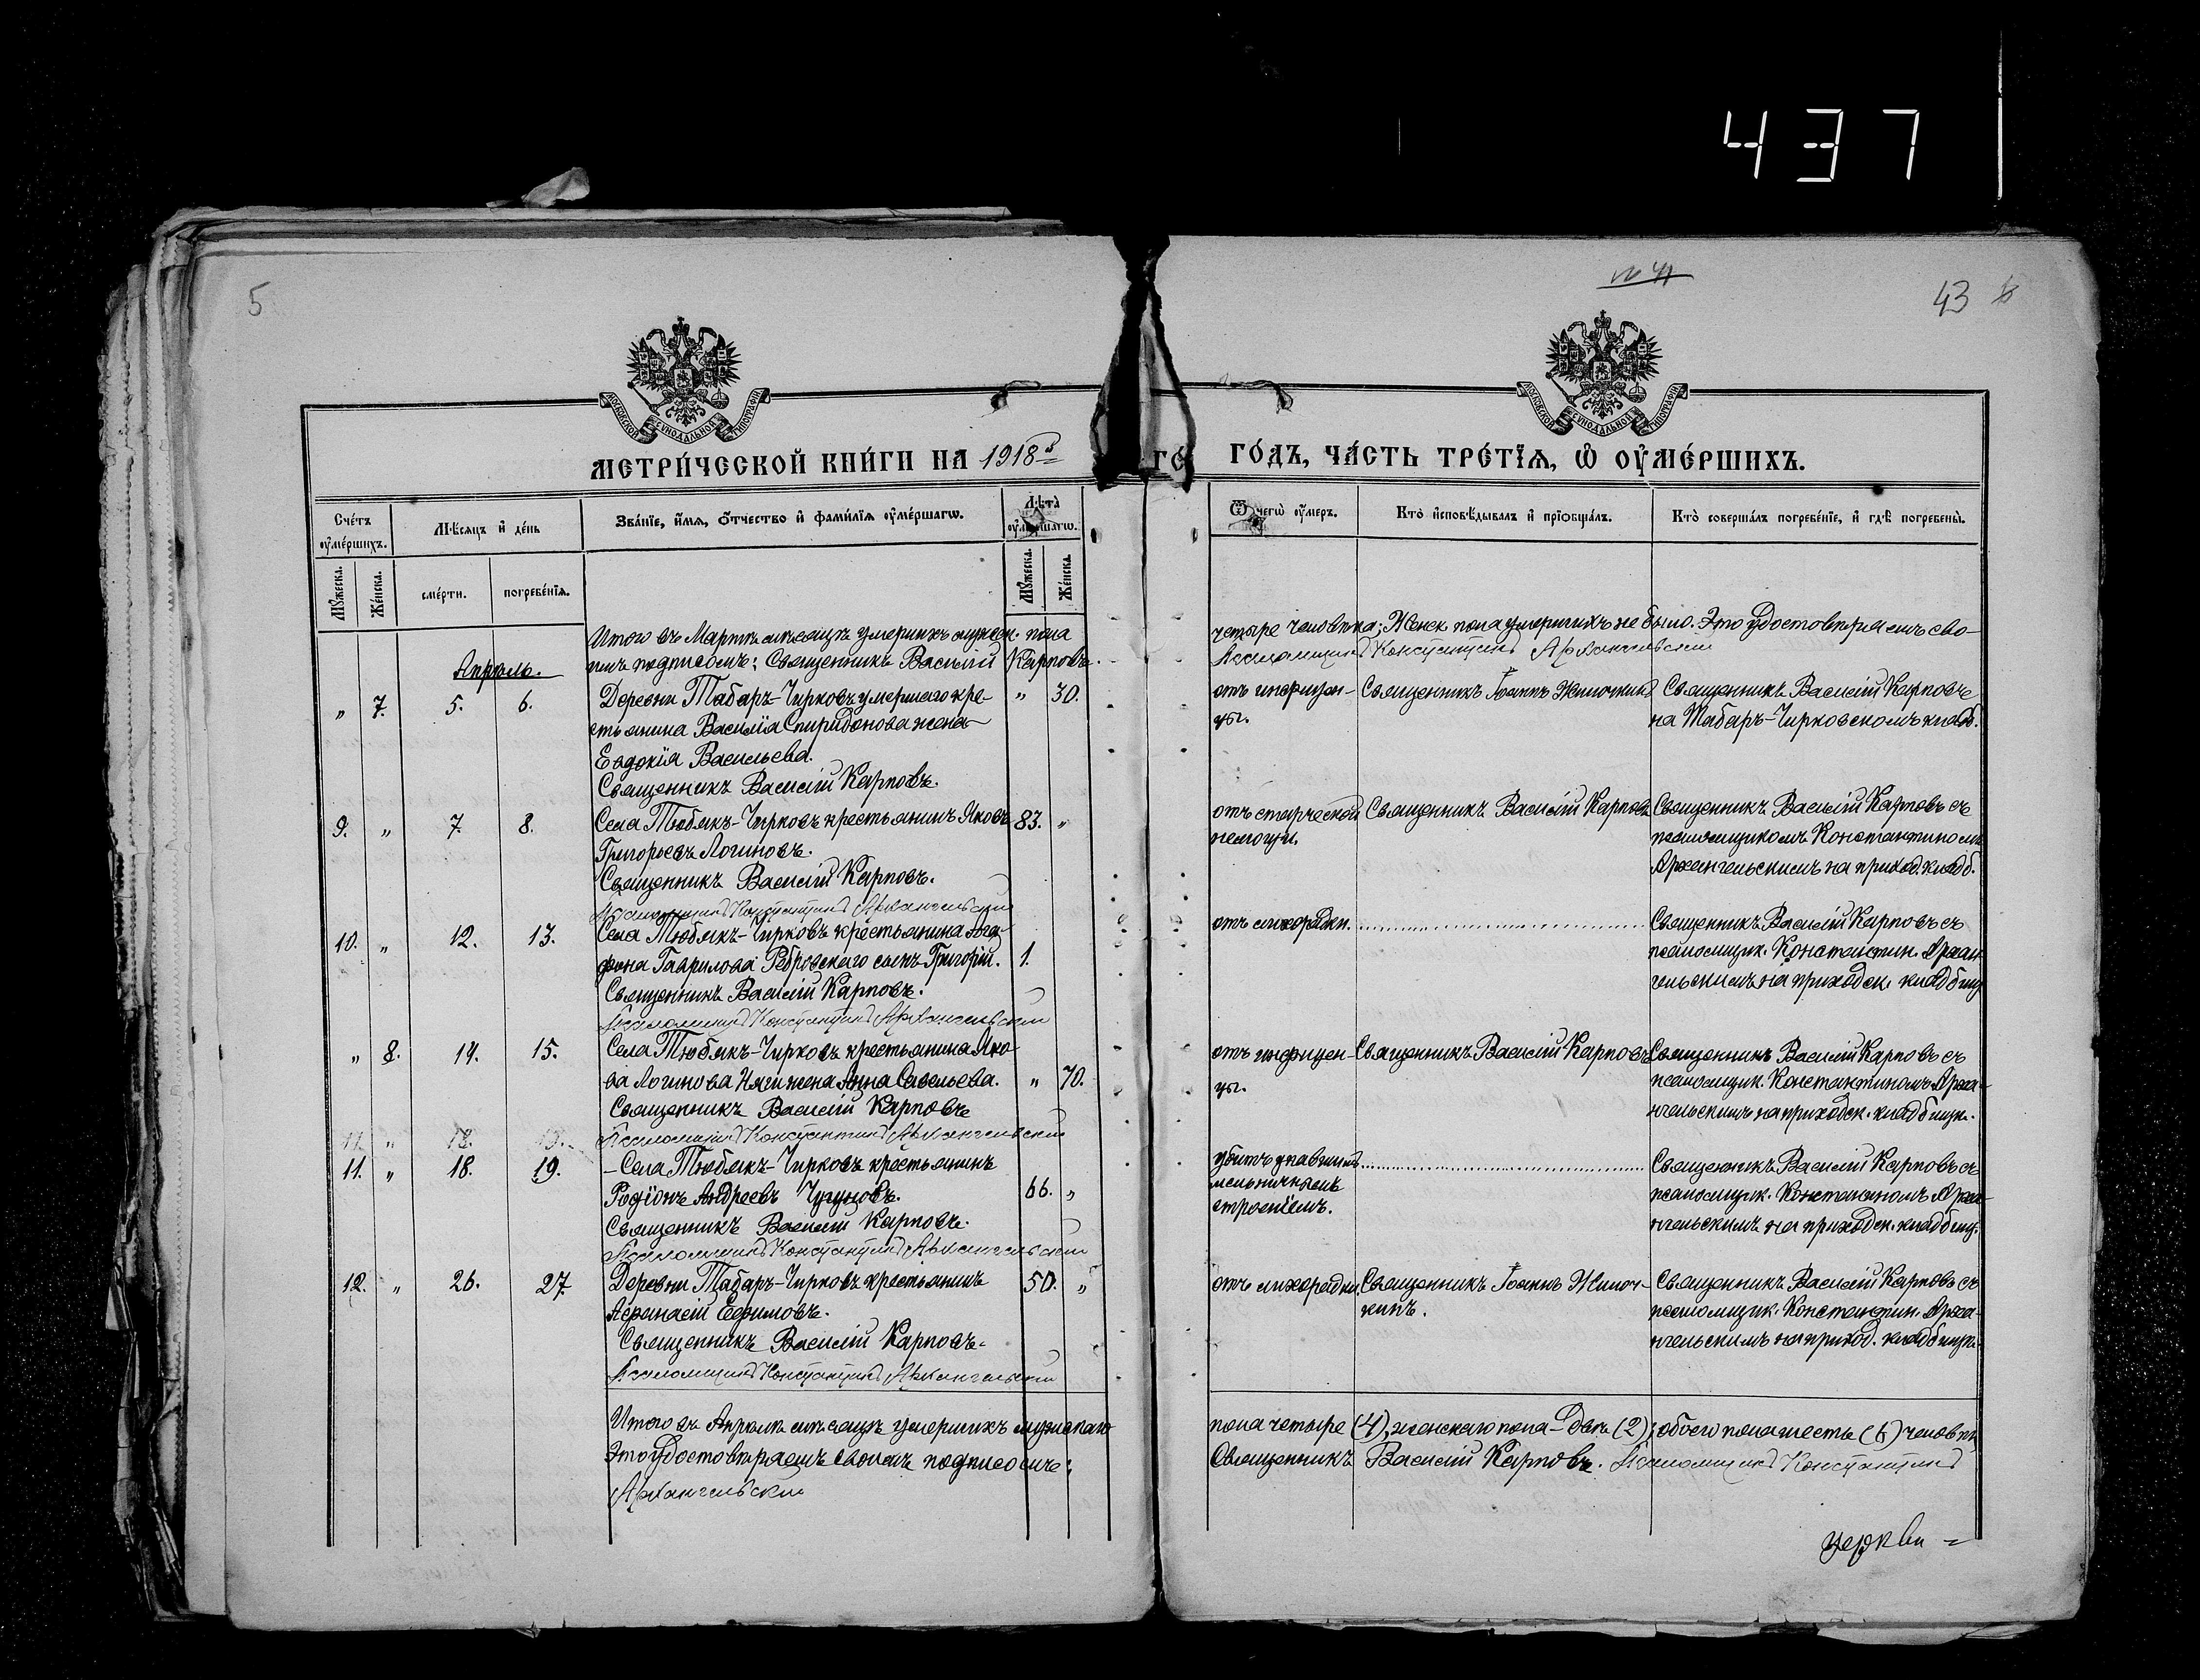 437
5
№ 41
43
МОСКОВСКОЙ СУНОДАЛЬНОЙ ТИПОГРАФІИ
МОСКОВСКОЙ СУНОДАЛЬНОЙ ТИПОГРАФІИ
МЕТРИ́ЧЕСКОЙ КНИ́ГИ НА 1918й
ГО́ ГО́ДЪ, ЧА́СТЬ ТРЕ́ТІѦ, Ѡ ОУ҆МЕ́РШИХЪ.
Сче́тъ оу҆ме́ршихъ.
Мѣ́сѧцъ и҆ де́нь
Зва́нїе, и҆́мѧ, ѻ҆́тчество и҆ фами́лїѧ оу҆ме́ршагѡ.
Лѣ́та оу҆ме́ршагѡ.
Ѿ чегѡ̀ оу҆́меръ.
Кто̀ и҆сповѣ́дывалъ и҆ прїѡбща́лъ.
Кто̀ соверша́лъ погребе́нїе, и҆ гдѣ̀ погребены̀.
Мꙋ́жеска.
Же́нска.
сме́рти.
погребе́нїѧ.
Мꙋ́жеска.
Же́нска.
Итого въ Мартѣ мѣсяцѣ умершихъ мужск. пола
четыре человѣка; Женск. пола умершихъ не было. Это удостовѣряемъ сво-
имъ подписомъ: Священникъ Василій Карповъ.
Псаломщикъ Константинъ Архангельскій
Апрѣль.
„ 7. 5. 6. Деревни Табаръ-Чирковъ умершаго кре- „ 30.
стьянина Василія Спиридонова жена
Евдокія Васильева.
Священникъ Василій Карповъ.
отъ инфлуэн- Священникъ Іоаннъ Священникъ Василій Карповъ
цы. на Табаръ-Чирковскомъ кладб.
9. „ 7. 8. Села Тюбякъ-Чирковъ крестьянинъ Яковъ 83. „
Григорьевъ Логиновъ.
Священникъ Василій Карповъ.
Псаломщикъ Константинъ Архангельскій
отъ старческой Священникъ Василій Карповъ Священникъ Василій Карповъ съ
немощи. псаломщикомъ Константиномъ
Архангельскимъ на приход. кладб.
10. „ 12. 13. Села Тюбякъ-Чирковъ крестьянина Ага-
фона Гаврилова Ребровскаго сынъ Григорій. 1.
Священникъ Василій Карповъ.
Псаломщикъ Константинъ Архангельскій
отъ лихорадки. Священникъ Василій Карповъ съ
псаломщик. Константин. Архан-
гельскимъ на приходск. кладбищ.
„ 8. 14. 15. Села Тюбякъ-Чирковъ крестьянина Яко-
ва Логинова жена Анна Савельева. „ 70.
Священникъ Василій Карповъ
Псаломщикъ Константинъ Архангельскій
отъ инфлуэн- Священникъ Василій Карповъ Священникъ Василій Карповъ съ
цы. псаломщик. Константиномъ Арха-
нгельскимъ на приходск. кладбищѣ.
11. „ 18. 19.
11. „ 18. 19. Села Тюбякъ-Чирковъ крестьянинъ
Родіонъ Андреевъ Чугуновъ. 66. „
Священникъ Василій Карповъ.
Псаломщикъ Константинъ Архангельскій
убитъ упавшимъ Священникъ Василій Карповъ съ
мельничнымъ псаломщик. Константиномъ Арха-
строеніемъ. нгельскимъ на приходск. кладбищ.
12. „ 26. 27. Деревни Табаръ-Чирковъ крестьянинъ 50. „
Аѳанасій Ефимовъ.
Священникъ Василій Карповъ.
Псаломщикъ Константинъ Архангельскій
отъ лихорадки. Священникъ Іоаннъ Священникъ Василій Карповъ съ
псаломщик. Константин. Арха-
нгельскимъ на приход. кладбищѣ.
Итого въ Апрѣлѣ мѣсяцѣ умершихъ мужскаго
пола четыре (4), женскаго пола - двѣ (2), обоего пола шесть (6) человѣкъ
Это удостовѣряемъ своимъ подписомъ:
Священникъ Василій Карповъ. Псаломщикъ Константинъ
Архангельскій
церкви =